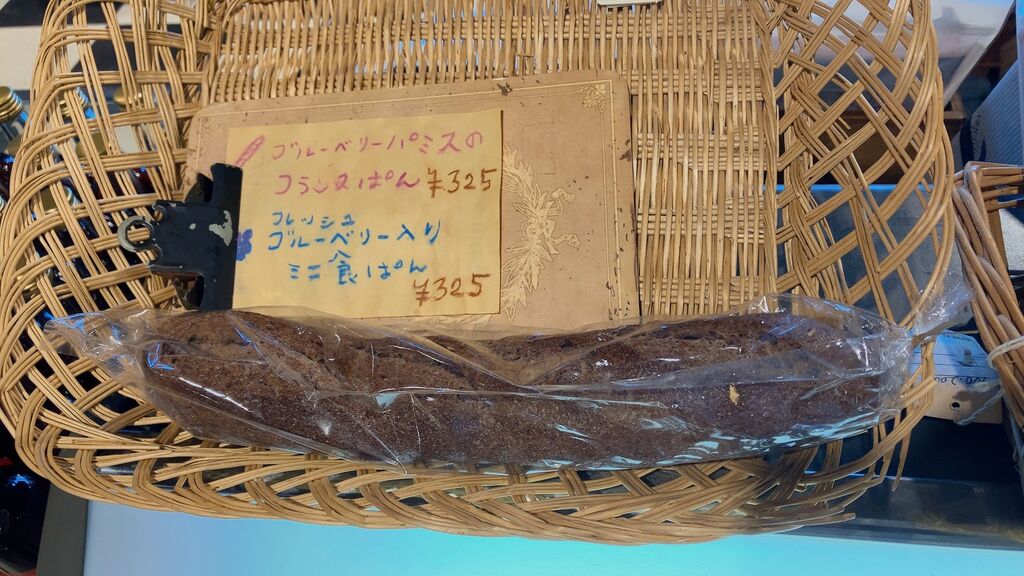 ブルーベリーパミスの
フランスぱん ¥325
フレッシュ
ブルーベリー入り
ミニ食ぱん
¥325